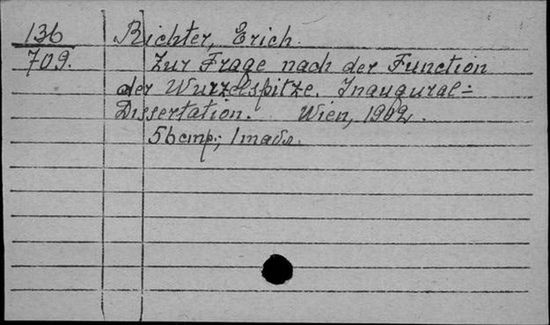 136
709.
Richter, Erich.
Zur Frage nach der Function
der Wurzelspitze. Inaugural=
Dissertation. Wien, 1902.
56стр; 1табл.